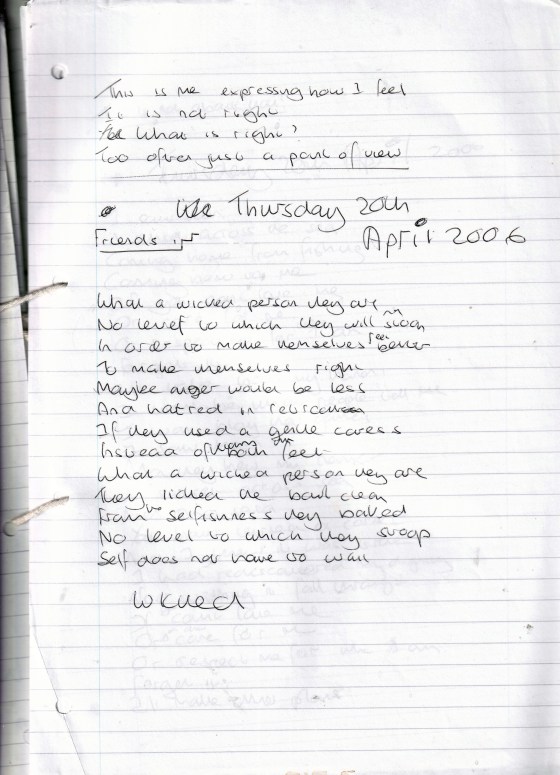 This is me expressing how I feel
It is not right
What is right?
Too often just a point of view
Thursday 20th
April 2006
Friends
What a wicked person they are
No level to which they will not swoop
In order to make themselves feel better
To make themselves right
Maybe anger would be less
And hatred in
If they used a gentle caress
Instead of using both feet
What a wicked person they are
They licked the bowl clean
From the selfishness they baked
No level to which they swoop
Self does not have to wait
Wicked